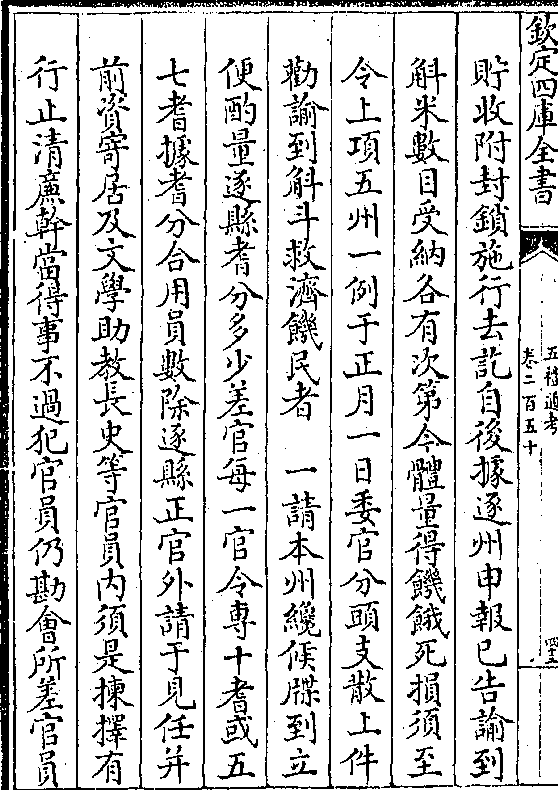 欽定四庫全書
五禮通考
卷二百五十
四十三
貯收附封鎖施行去訖自後據逐州申報已告諭到
斛米數目受納各有次第今體量得饑餓死損須至
令上項五州一例于正月一日委官分頭支散上件
勸諭到斛斗救濟饑民者　一請本州纔候牒到立
便酌量逐縣耆分多少差官每一官令專十耆或五
七耆據耆分合用員數除逐縣正官外請于見任并
前資寄居及文學助教長史等官員内須是揀擇有
行止清廉幹當得事不過犯官員仍勘會所差官員